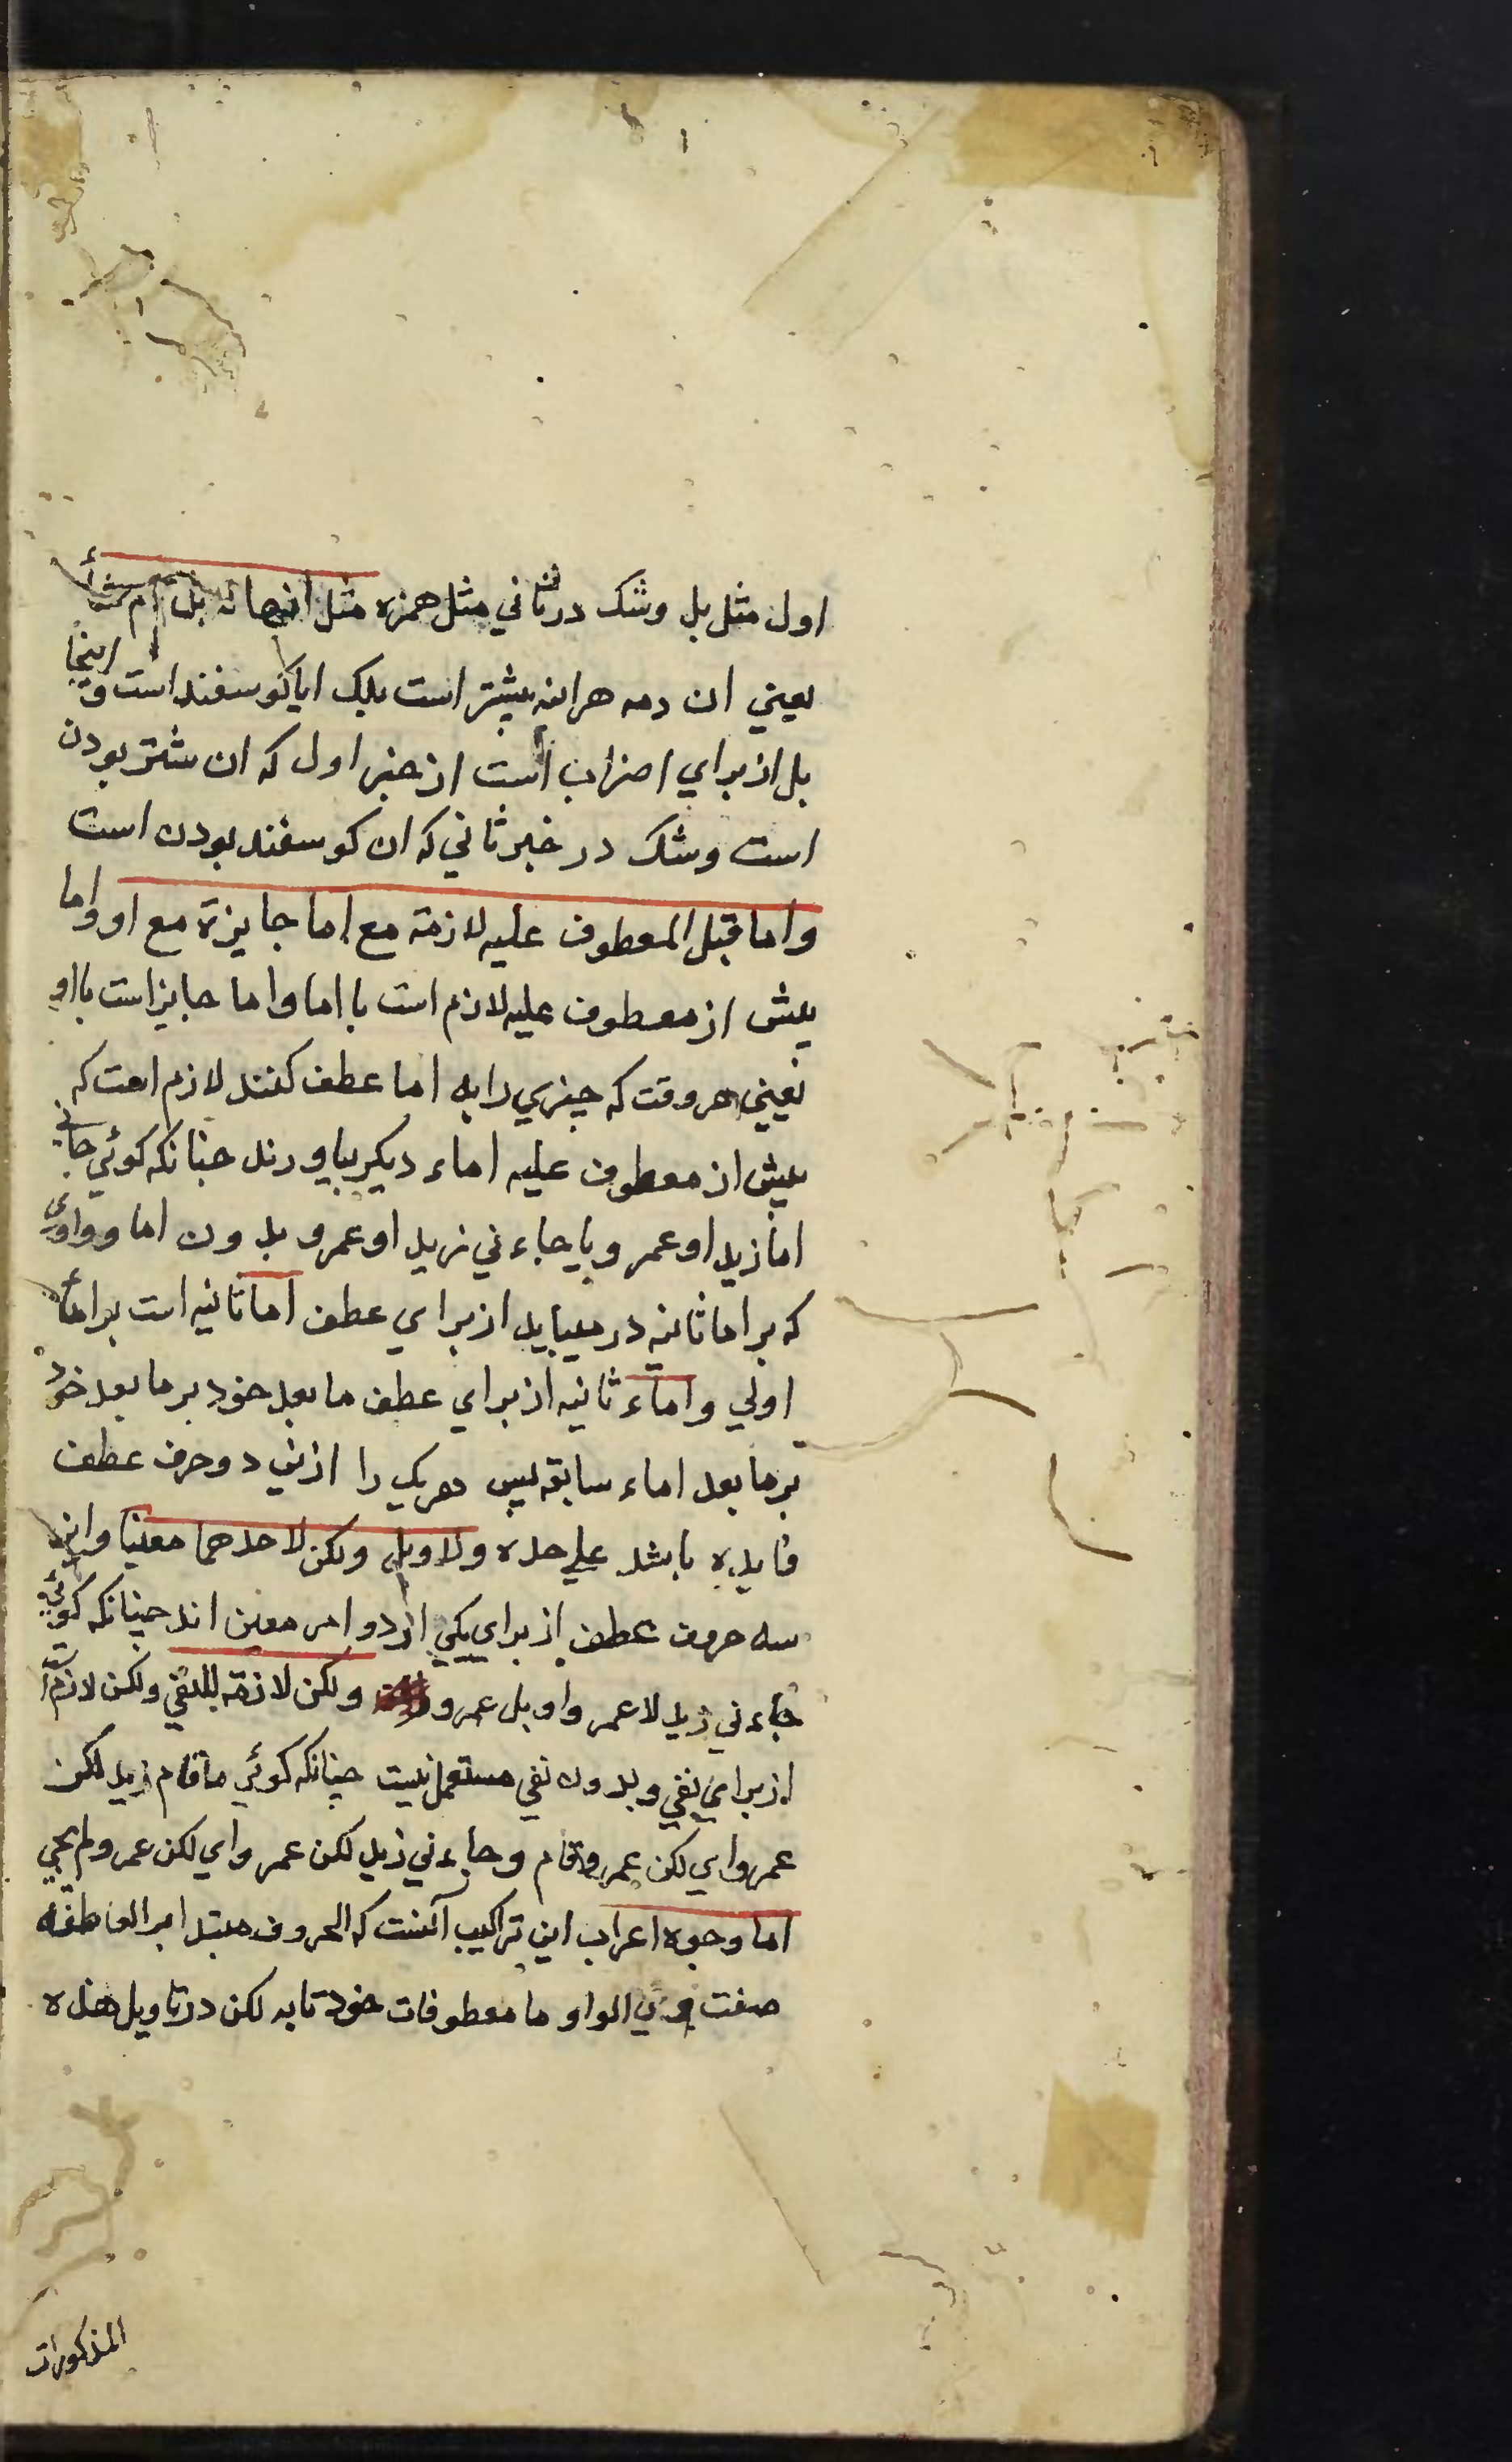 اول مثل بل وشک در ثاني مثل همزه مثل انها لابل ام شأ
يعني ان رمه هراينه بيشتر است بلک ايا کوسفند است و اينجا
بل از براي اضراب است از خبر اول که ان شتر بودن
است وشک در خبر ثاني که ان کوسفند بودن است
واما قبل المعطوف عليه لازمة مع اما جايزة مع او واما
پيش از معطوف عليه لازم است با اما واما جايز است با او
يعني هر وقت که چيزي را به اما عطف کنند لازم است که
پيش از معطوف عليه اماء ديکر بياورند چنانکه کوئي جاني
اما زيد او عمر ويا جاءني زيد او عمرو بدون اما وواوي
که بر اما ثانيه در ميايد از براي عطف اما ثانيه است بر اماء
اولي واماء ثانيه از براي عطف ما بعد خود بر ما بعد خود
بر ما بعد اماء سابقه پس هر يک را ازين دو حرف عطف
فايده باشد علي حده ولا وبل ولکن لاحدهما معينا واين
سه حروف عطف از براي يکي از دو امر معين اند چنانکه کوئي
جاءني زيد لا عمر واو بل عمرو ولکن لازمة للنفي ولکن لازم است
از براي نفي وبدون نفي مستعمل نيست چنانکه کوئي ما قام زيد لکن
عمرو اي لکن عمرو قام وجاءني زيد لکن عمر واي لکن عمرو لم يجي
اما وجوه اعراب اين تراکيب آنست که الحروف مبتدا بر العاطفة
صفت وي الواو ما معطوفات خود تا به لکن در تاويل هذه
المذکورات